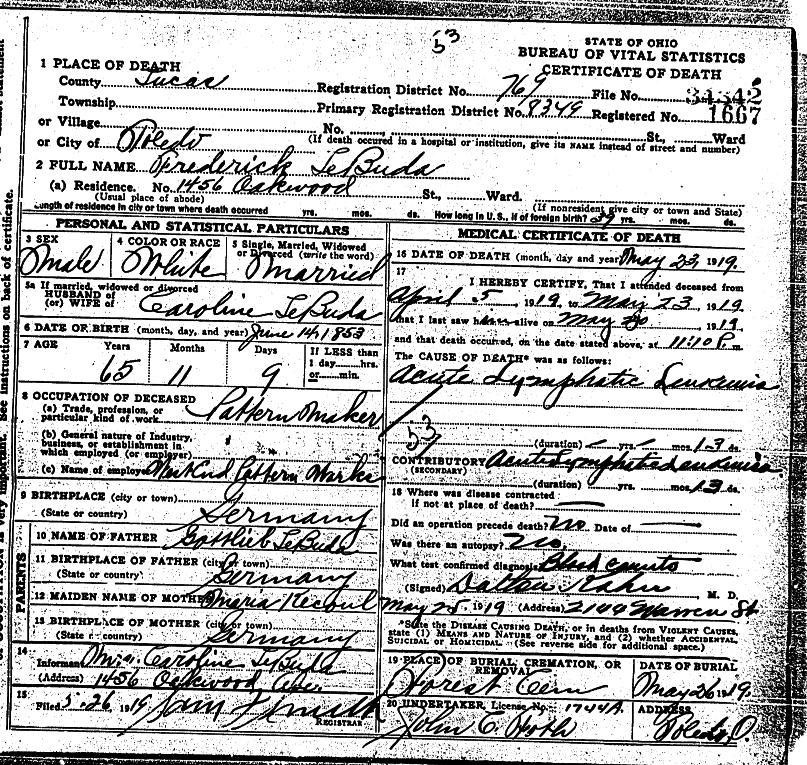 53
STATE OF OHIO
BUREAU OF VITAL STATISTICS
CERTIFICATE OF DEATH
1 PLACE OF DEATH
County Lucas Registration District No. 769 File No. 34342
Township Primary Registration District No. 8349 Registered No. 1667
or Village No. St., Ward
or City of Toledo (If death occured in a hospital or institution, give its NAME instead of street and number)
2 FULL NAME Frederick LeBuda
(a) Residence. No. 1456 Oakwood St., Ward.
(Usual place of abode) (If nonresident give city or town and State)
Length of residence in city or town where death occurred yrs. mos. ds. How long in U.S., if of foreign birth? 39 yrs. mos. ds.
PERSONAL AND STATISTICAL PARTICULARS
3 SEX 4 COLOR OR RACE 5 Single, Married, Widowed
or Divorced (write the word)
Male White Married
5a If married, widowed or divorced
HUSBAND of
(or) WIFE of Caroline LeBuda
6 DATE OF BIRTH (month, day, and year) June 14, 1853
7 AGE Years Months Days If LESS than
1 day......hrs.
or......min.
65 11 9
8 OCCUPATION OF DECEASED
(a) Trade, profession, or
particular kind of work Pattern Maker
(b) General nature of Industry,
business, or establishment in
which employed (or employer)
(c) Name of employer Pattern Works
9 BIRTHPLACE (city or town)
(State or country) Germany
PARENTS
10 NAME OF FATHER Gottlieb LeBuda
11 BIRTHPLACE OF FATHER (city or town)
(State or country) Germany
12 MAIDEN NAME OF MOTHER Maria
13 BIRTHPLACE OF MOTHER (city or town)
(State or country) Germany
14
Informant Mrs. Caroline LeBuda
(Address) 1456 Oakwood Ave
15
Filed 5-26 1919
REGISTRAR
MEDICAL CERTIFICATE OF DEATH
16 DATE OF DEATH (month, day and year) May 23, 1919.
17
I HEREBY CERTIFY, That I attended deceased from
April 5, 1919, to May 23, 1919
that I last saw h alive on May 20 1919
and that death occurred, on the date stated above, at 11:10 P.m.
The CAUSE OF DEATH* was as follows:
Acute Lymphatic Leukemia
53
(duration) yrs. mos. 13 ds.
CONTRIBUTORY Acute Lymphatic Leukemia
(SECONDARY)
(duration) yrs. mos. 13 ds.
18 Where was disease contracted
if not at place of death?
Did an operation precede death? No Date of
Was there an autopsy? No
What test confirmed diagnosis Blood counts
(Signed) Kahn M. D.
May 25, 1919 (Address) 2144 Warren St
*State the DISEASE CAUSING DEATH, or in deaths from VIOLENT CAUSES,
state (1) MEANS AND NATURE OF INJURY, and (2) whether ACCIDENTAL
SUICIDAL or HOMICIDAL. (See reverse side for additional space.)
19 PLACE OF BURIAL, CREMATION, OR
REMOVAL DATE OF BURIAL
Forest Cem May 26 1919.
20 UNDERTAKER, License No. 1744A ADDRESS
John Toledo, O.
See instructions on back of certificate.